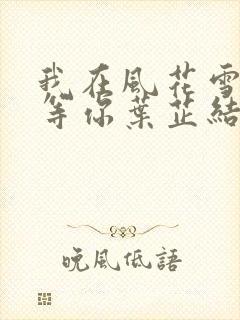 我在風花雪
等你葉芷結
晚風低語